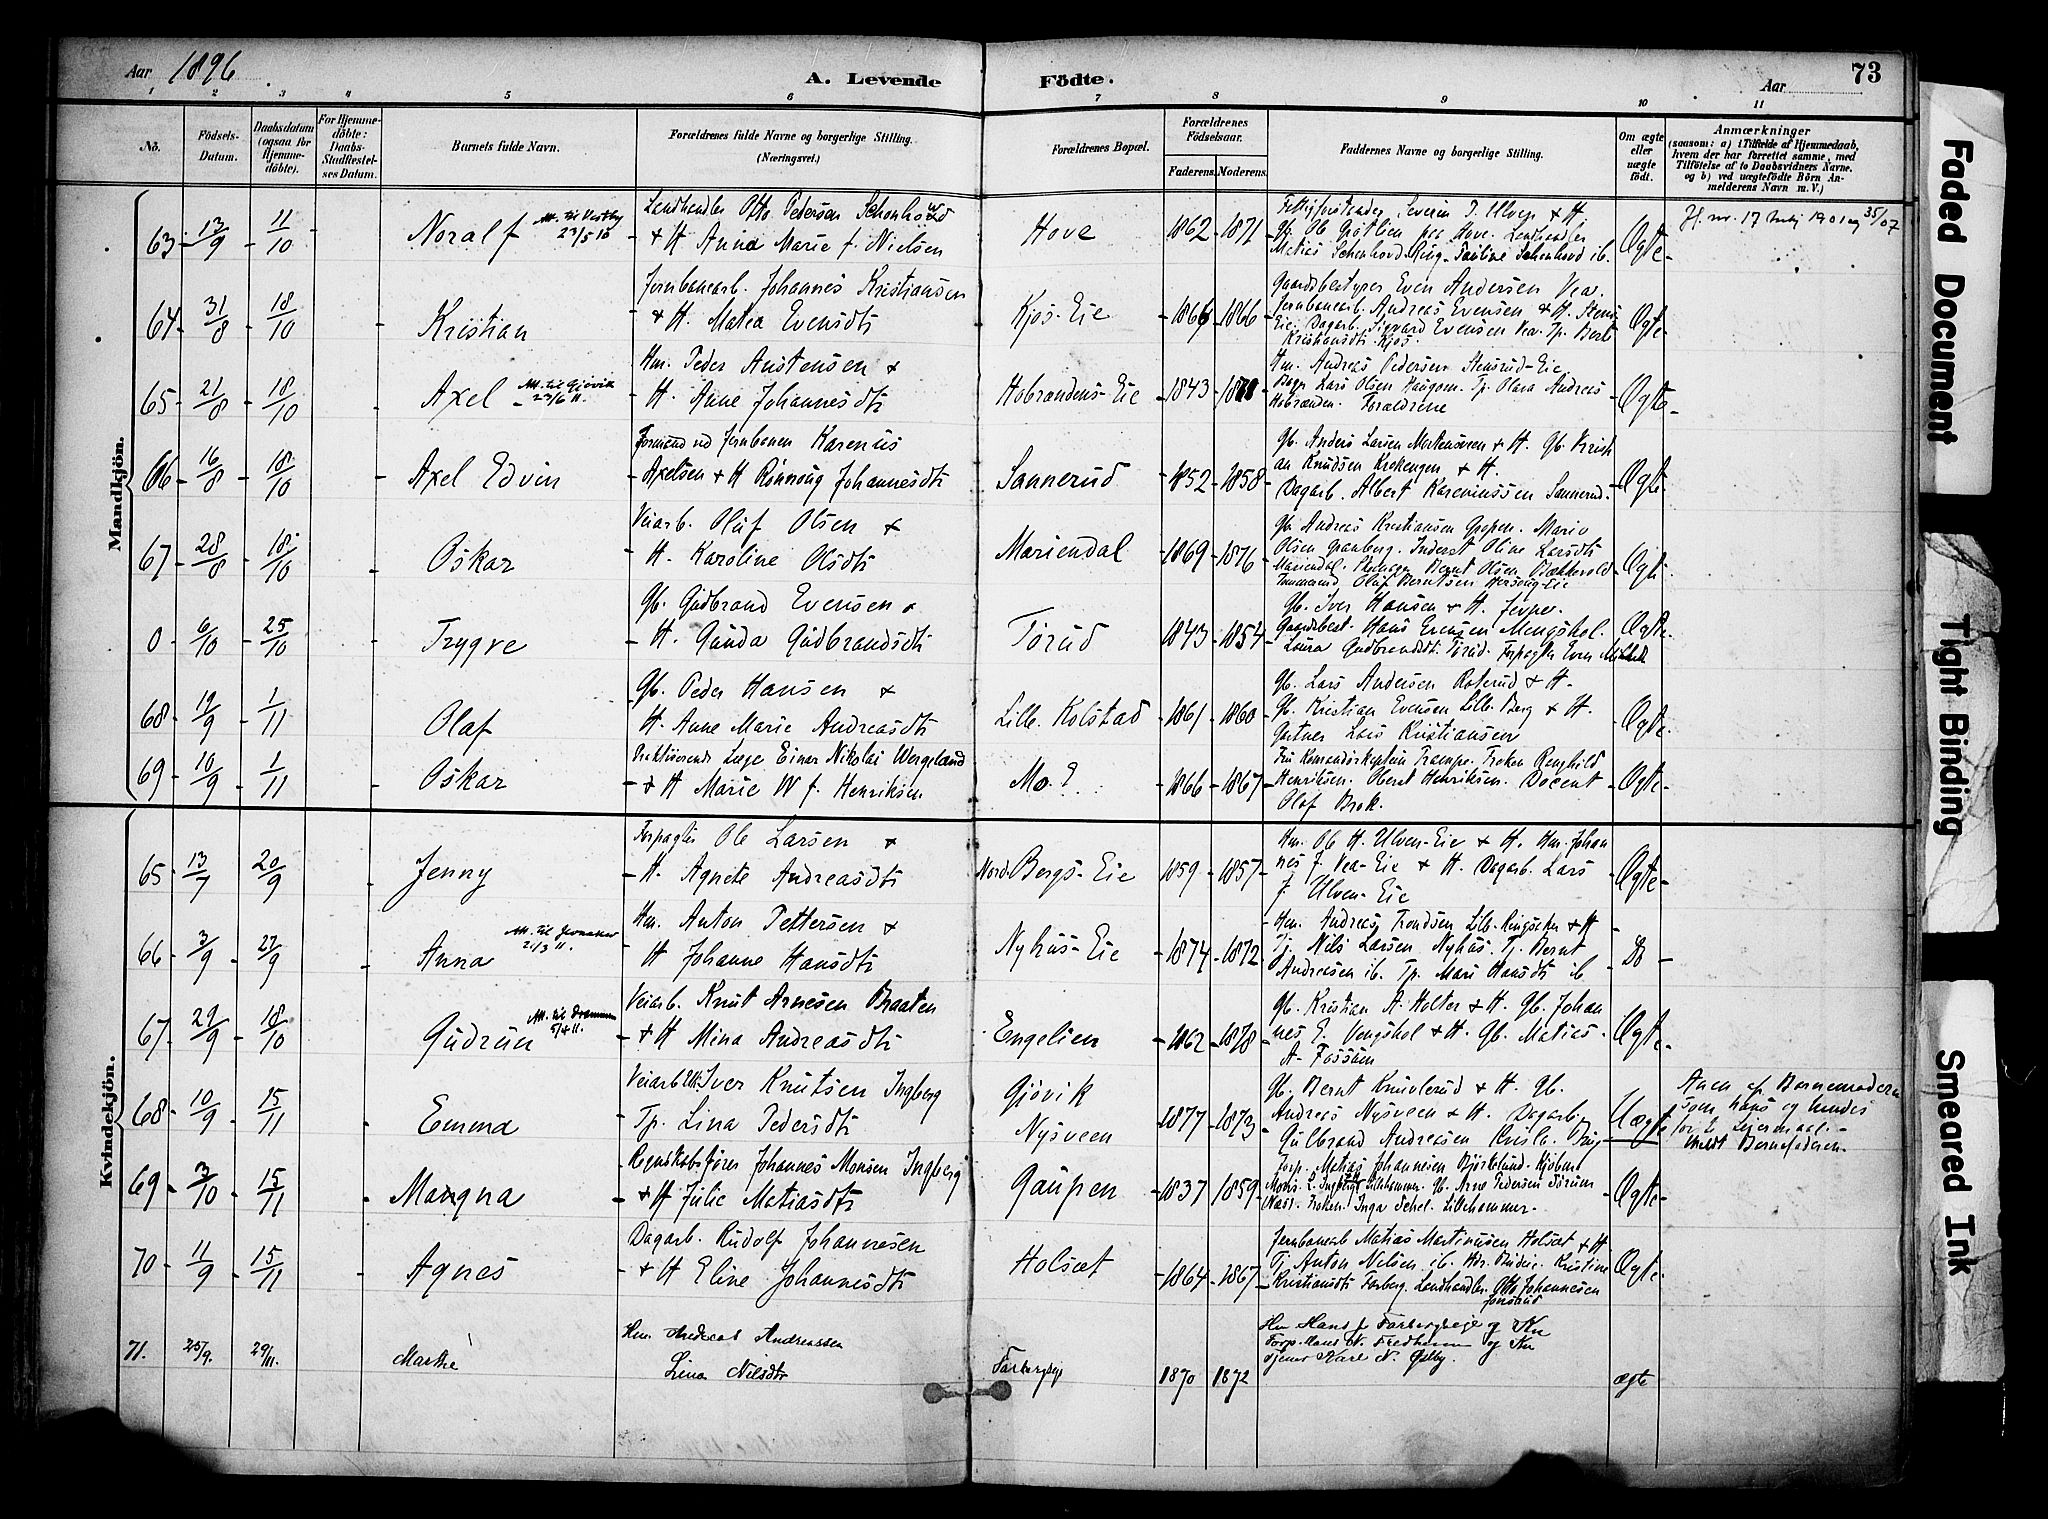 Aar 1896
A. Levende Födte.
Aar
73
1 2 3 4 5 6 7 8 9 10 11
Nô.
Födsels-
Datum.
Daabsdatum
(ogsaa for
Hjemme-
döbte).
For Hjemme-
döbte:
Daabs-
Stadfæstel-
ses Datum.
Barnets fulde Navn.
Forældrenes fulde Navne og borgerlige Stilling.
(Næringsvei.)
Forældrenes Bopæl.
Forældrenes
Födselsaar.
Faderens. Moderens.
Faddernes Navne og borgerlige Stilling.
Om ægte
eller
uægte
födt.
Anmærkninger
(saasom: a) i Tilfælde af Hjemmedaab,
hvem der har forrettet samme, med
Tilföielse af to Daabsvidners Navne,
og b) ved uægtefödte Börn An-
melderens Navn m. V.)
Mandkjön.
63 13/9 11/10 Noralf
Att. til Vestby
23/5 10
Landhandler Otto Pedersen Schonhowd
+ H Anna Marie f. Nielsen
Hove 1862 1871
Severin T. Ulven + H.
Gb. Ole Grötlien Hove. Landhandler
Matias Schonhovd Ring. Pauline Schonhovd ib.
Ægte
64 31/8 18/10 Kristian
Jernbanearb. Johannes Kristiansen
+ H. Matea Evensdtr
Kjos-Eie 1866 1866
Gaardsbestyrer Even Andersen Vea.
Jernbanearb. Andreas Evensen + H. Stens-
Eie. Dagarb. Sigvard Evensen Vea. Tp. Berte
Kristiansdt. Kjos.
Ægte
65 21/8 18/10 Axel
Att. til Gjøvik
23/6 11.
Hm. Peder Austensen +
H. Anne Johannesdtr
Hobrandens-Eie 1843
Hm. Andreas Pedersen Stensrud-Eie.
Lars Olsen Haugom. Tp. Olava Andreas
Hobranden. Forældrene
Ægte
66 16/8 18/10 Axel Edvin
Formand ved Jernbanen Karenius
Axelsen + H Rönnaug Johannesdtr
Sannerud 1852 1858
Gb. Anders Larsen Mortensveen + H. Gb. Kristi
an Knudsen Krekengen + H.
Dagarb. Albert Kareniussen Sannerud.
Ægte
67 28/8 18/10 Oskar
Veiarb. Oluf Olsen +
H. Karoline Olsdtr
Mariendal 1869 1876
Gb. Andreas Kristiansen
Olsen Granberg. Inderst Oline Larsdtr
Mariendal. Bernt Olsen
Oluf Berntsen
Ægte
0 6/10 25/10 Trygve
Gb. Gudbrand Evensen +
H. Gunda Gudbrandsdtr
Törud 1843 1854
Gb. Iver Hansen + H.
Gaardsbest. Hans Evensen Mengshol.
Laura Gudbrandsdt. Törud. Forpagter Even
Ægte
68 19/9 1/11 Olaf
Gb. Peder Hansen +
H. Anne Marie Andreasdtr
Lille Kolstad 1861 1860
Gb. Lars Andersen Roterud + H.
Gb. Kristian Evensen Lille Berg + H.
Gartner Lars Kristiansen
Ægte
69 10/9 1/11 Oskar
Praktiserende Læge Einar Nikolai Wergeland
+ H Marie W f. Henriksen
Mo. 1866 1867
Fru Trampe. Frøken Ragnhild
Henriksen. Oberst Henriksen. Docent
Olaf Brok.
Ægte
Kvindekjön.
65 13/7 20/9 Jenny
Forpagter Ole Larsen +
H. Agnete Andreasdtr
Nord. Bergs-Eie 1859 1857
Hm. Ole H. Ulven-Eie + H. Hm. Johan
nes J. Vea-Eie + H. Dagarb. Lars
J. Ulven-Eie
Ægte
66 3/9 27/9 Anna
Att. til Jevnaker
21/3 11.
Hm. Anton Pettersen +
H Johanne Hansdtr
Nyhus-Eie 1874 1872
Hm. Andreas Trondsen Lille-Ringsaker + H
Tj. Nils Larsen Nyhus. Tj. Bernt
Andreasen ib. Tp. Mari Hansdtr ib
Do
67 29/9 18/10 Gudrun
Att. til Drammen
5/4 11.
Veiarb. Knut Arnesen Braaten
+ H Mina Andreasdtr
Engelien 1862 1878
Gb. Kristian A. Holter + H. Gb. Johan
nes E. Vengshol + H. Gb. Matias
A. Fossum
Ægte
68 10/9 15/11 Emma
Veiarb. Uk. Iver Knutsen Ingberg
Tp. Lina Pedersdtr
Gjövik
Nysveen 1877 1873
Gb. Bernt Knuvlerud + H. Gb.
Andreas Nysveen + H. Dagarb.
Gulbrand Andreasen
Uægte
Anm. af Barnemoderen
som hans og hendes
1ste Leiermaal.
Barnefaderen.
69 3/10 15/11 Magna
Regnskabsförer Johannes Monsen Ingberg
+ H Julie Matiasdtr
Gaupen 1837 1859
Forp. Matias Johannesen Björkelund. Kjöbm.
L. Ingberg Lillehammer. Gb. Arne Pedersen
Næss. Fröken Inga Lillehammer.
Ægte
70 11/9 15/11 Agnes
Dagarb. Rudolf Johannesen
+ H Eline Johannesdtr
Holsæt 1864 1867
Jernbanearb Matias Martinusen Holsæt + H
Tj. Anton Nilsen ib. Kristine
Kristiansdt. Farberg. Landhandler Otto Johannesen
Jonsrud
Ægte
71. 25/9. 29/11. Marthe
Hm. Andreas Andreassen
Lina Nilsdtr
Farbergseje 1870 1872
Hm Hans J. Farbergseje og Kn
Forp. Hans N. Fredheim og Kn
Tjener Karl N. Østby.
ægte
Faded Document
Tight Binding
Smeared Ink